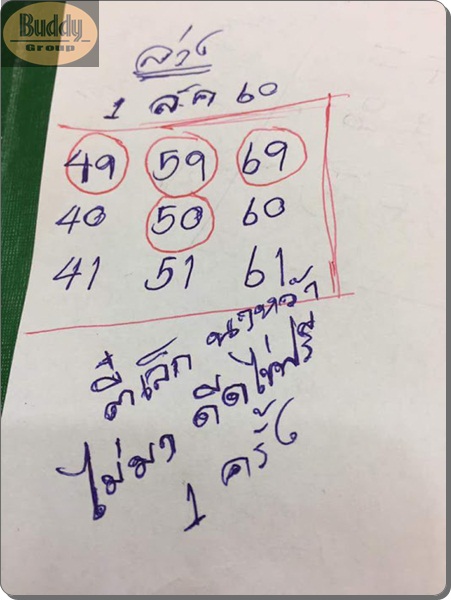 Buddy
Group
ล่าง
1 สค 60
49 59 69
40 50 60
41 51 61
ตี๋เล็ก นาหว้า
ไม่มา ดีดไข่ฟรี
1 ครั้ง